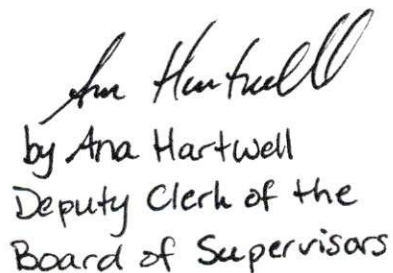 Ana Hartwell
by Ana Hartwell
Deputy Clerk of the
Board of Supervisors